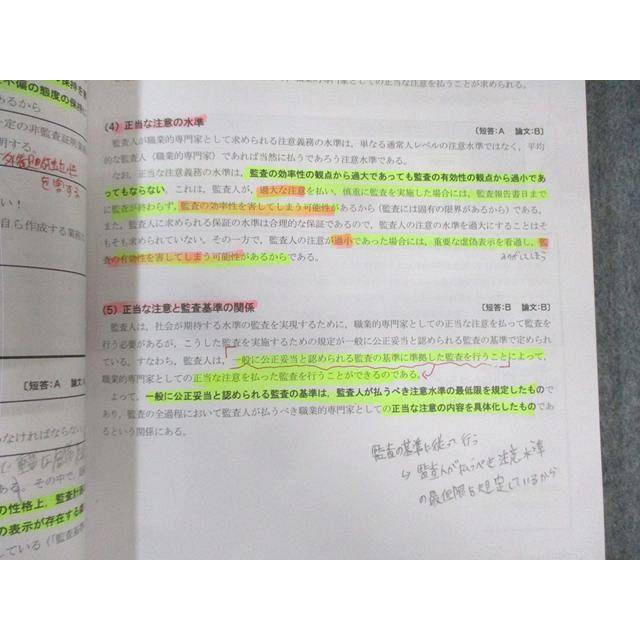 の保持を
不偏の態度の保持
あるから
定の非監査証明業務
明する。
を害する
い!
自ら作成する業務
[短答:A 論文:
なければならない
ある。その中で、
の性格上、監査計画
の表示が存在する
している(「監査基
専門家としての正当な注意を払うことが求められる。
(4) 正当な注意の水準
[短答:A 論文:B]
監査人が職業的専門家として求められる注意義務の水準は、単なる通常人レベルの注意水準ではなく、平均
的な監査人(職業的専門家)であれば当然に払うであろう注意水準である。
なお、正当な注意義務の水準は、監査の効率性の観点から過大であっても監査の有効性の観点から過小であ
ってもならない。これは、監査人が、過大な注意を払い、慎重に監査を実施した場合には、監査報告書日まで
に監査が終わらず、監査の効率性を害してしまう可能性があるから(監査には固有の限界があるから)である。
また、監査人に求められる保証の水準は合理的な保証であるので、監査人の注意の水準を過大にすることはそ
もそも求められていない。その一方で、監査人の注意が過小であった場合には、重要な虚偽表示を看過し、監
査の有効性を害してしまう可能性があるからである。
(5) 正当な注意と監査基準の関係
[短答:B 論文:B]
監査人は、社会が期待する水準の監査を実現するために、職業的専門家としての正当な注意を払って監査を
行う必要があるが、こうした監査を実施するための規定が一般に公正妥当と認められる監査の基準で定められ
ている。すなわち、監査人は、一般に公正妥当と認められる監査の基準に準拠した監査を行うことによって、
職業的専門家としての正当な注意を払った監査を行うことができるのである。
よって、一般に公正妥当と認められる監査の基準は、監査人が払うべき注意水準の最低限を規定したもので
あり、監査の全過程において監査人が払うべき職業的専門家としての正当な注意の内容を具体化したものであ
るという関係にある。
監査の基準に従って行う
↳ 監査人が払うべき注意水準
の最低限を規定しているから